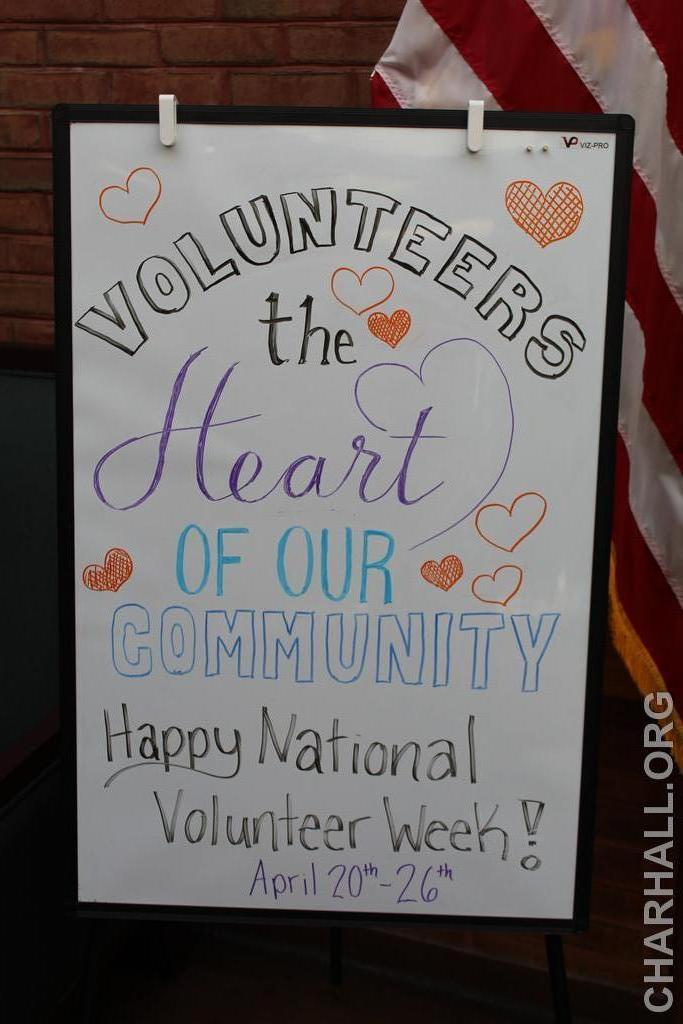 VP VIZ-PRO
VOLUNTEERS
the
Heart
OF OUR
COMMUNITY
Happy National
Volunteer Week!
April 20th-26th
CHARHALL.ORG